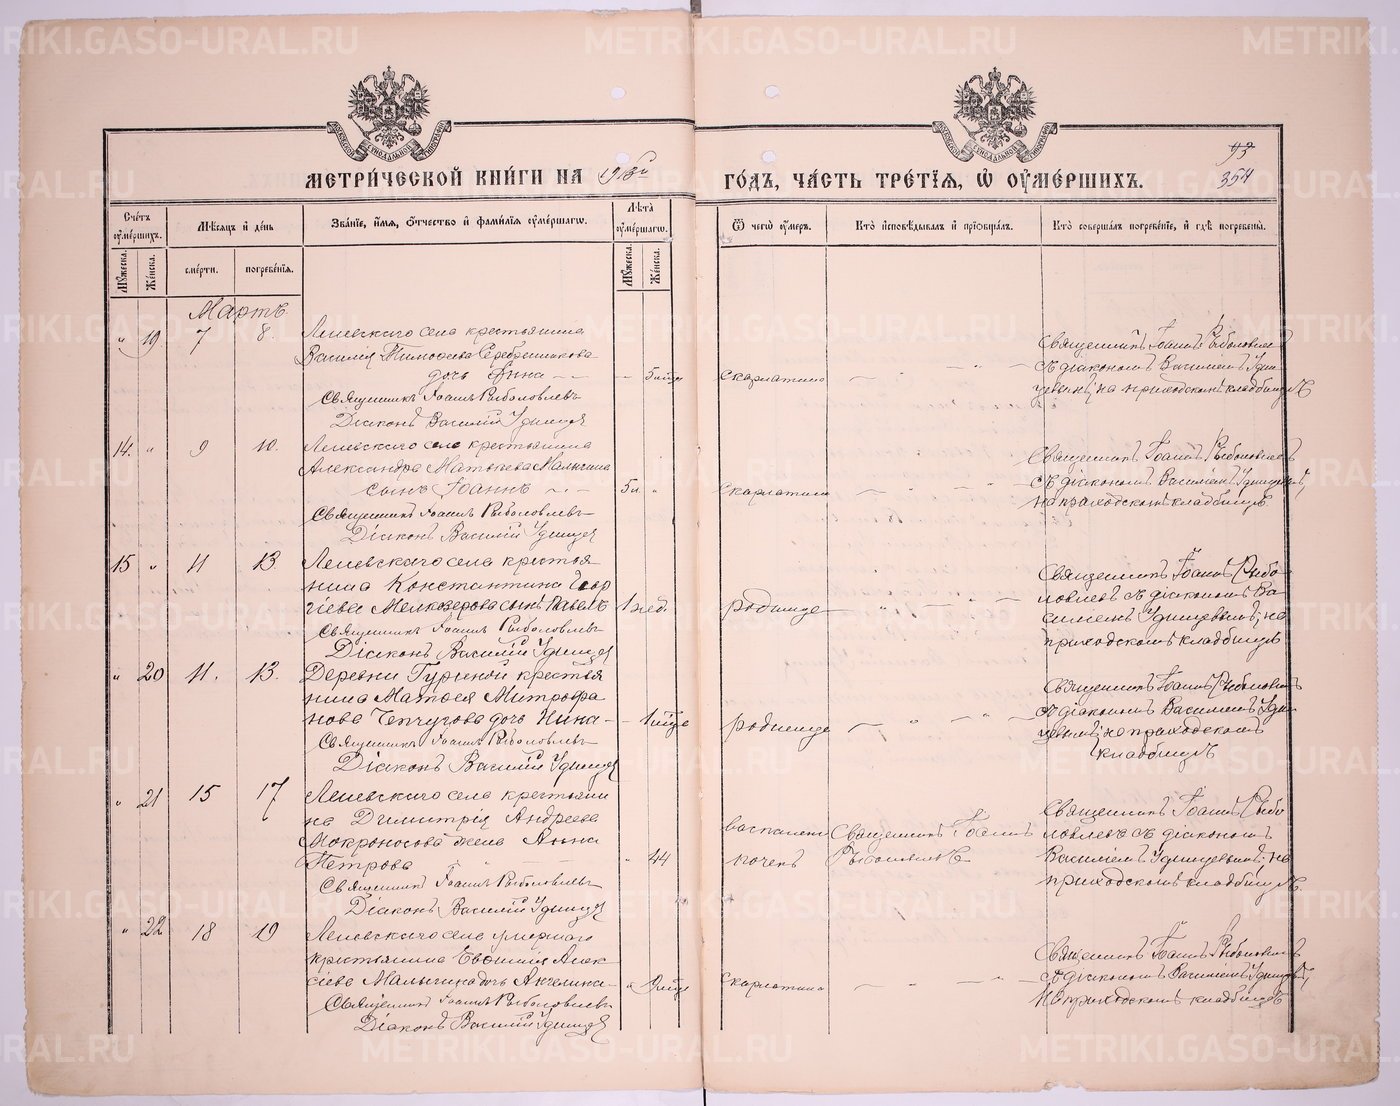 МЕТРИ́ЧЕСКОЙ КНИ́ГИ НА 1913й ГО́ДЪ, ЧА́СТЬ ТРЕ́ТІЯ, Ѿ ОУМЕ́РШИХЪ.
93
354
Сче́тъ оумѐршихъ.
Мѹ́жеска.
Же́нска.
Мѣ́сяцъ и҆ де́нь
сме́рти.
погребе́нїя.
Зва́нїе, и҆́мя, ѻ҆́тчество и҆ фами́лїя оумѐршагѡ.
Лѣ́та оумѐршагѡ.
Мѹ́жеска.
Же́нска.
Ѿ чегѡ̀ оу́меръ.
Кто̀ и҆сповѣ́дывалъ и҆ прїѻбща́лъ.
Кто̀ соверша́лъ погребе́нїе, и҆ гдѣ̀ погребены̀.
Мартъ
" 19. 7 8.
Леневскаго села крестьянина
Василія Тимофеева Серебренникова
дочь Анна
Священникъ Іоаннъ Рыболовлевъ
Діаконъ Василій Удинцев
скарлатина
Священникъ Іоаннъ Рыболовлев
съ діакономъ Василіемъ Удин-
цевымъ, на приходскомъ кладбищѣ
14. " 9 10.
Леневскаго села крестьянина
Александра Матвеева Малыгина
сынъ Іоаннъ
5
Священникъ Іоаннъ Рыболовлевъ
Діаконъ Василій Удинцев
скарлатина
Священникъ Іоаннъ Рыболовлевъ
съ діакономъ Василіем Удинцевымъ,
на приходскомъ кладбищѣ.
15 " 11 13
Леневскаго села крестья-
нина Константина Геор
гіева Мелкозерова сынъ Павелъ
1 нед.
Священникъ Іоаннъ Рыболовлевъ
Діаконъ Василій Удинцев
родимце
Священникъ Іоаннъ Рыбо-
ловлевъ съ діакономъ Ва-
силіемъ Удинцевымъ, на
приходскомъ кладбищѣ
" 20 11. 13.
Деревни Гуриной крестья
нина Матфея Митрофа
нова Чепчугова дочь Нина
Священникъ Іоаннъ Рыболовлевъ
Діаконъ Василій Удинцев
родимце
Священникъ Іоаннъ Рыболовлевъ
съ діакономъ Василіемъ Удин-
цевымъ, на приходскомъ
кладбищѣ
" 21 15 17
Леневскаго села крестьяни
на Димитрія Андреева
Мокроносова жена Анна
Петрова
" 44
Священникъ Іоаннъ Рыболовлевъ
Діаконъ Василій Удинцев
воспаленія
почекъ
Священникъ Іоаннъ
Рыболовлевъ
Священникъ Іоаннъ Рыбо
ловлевъ съ діакономъ
Василіемъ Удинцевымъ, на
приходскомъ кладбищѣ.
" 22 18 19
Леневскаго села умершаго
крестьянина Евфимія Алек-
сіева Малыгина дочь Ангелина
Священникъ Іоаннъ Рыболовлевъ
Діаконъ Василій Удинцев
скарлатина
Священникъ Іоаннъ Рыболовлевъ
съ діакономъ Василіемъ Удинцевымъ,
на приходскомъ кладбищѣ
METRIKI.GASO-URAL.RU